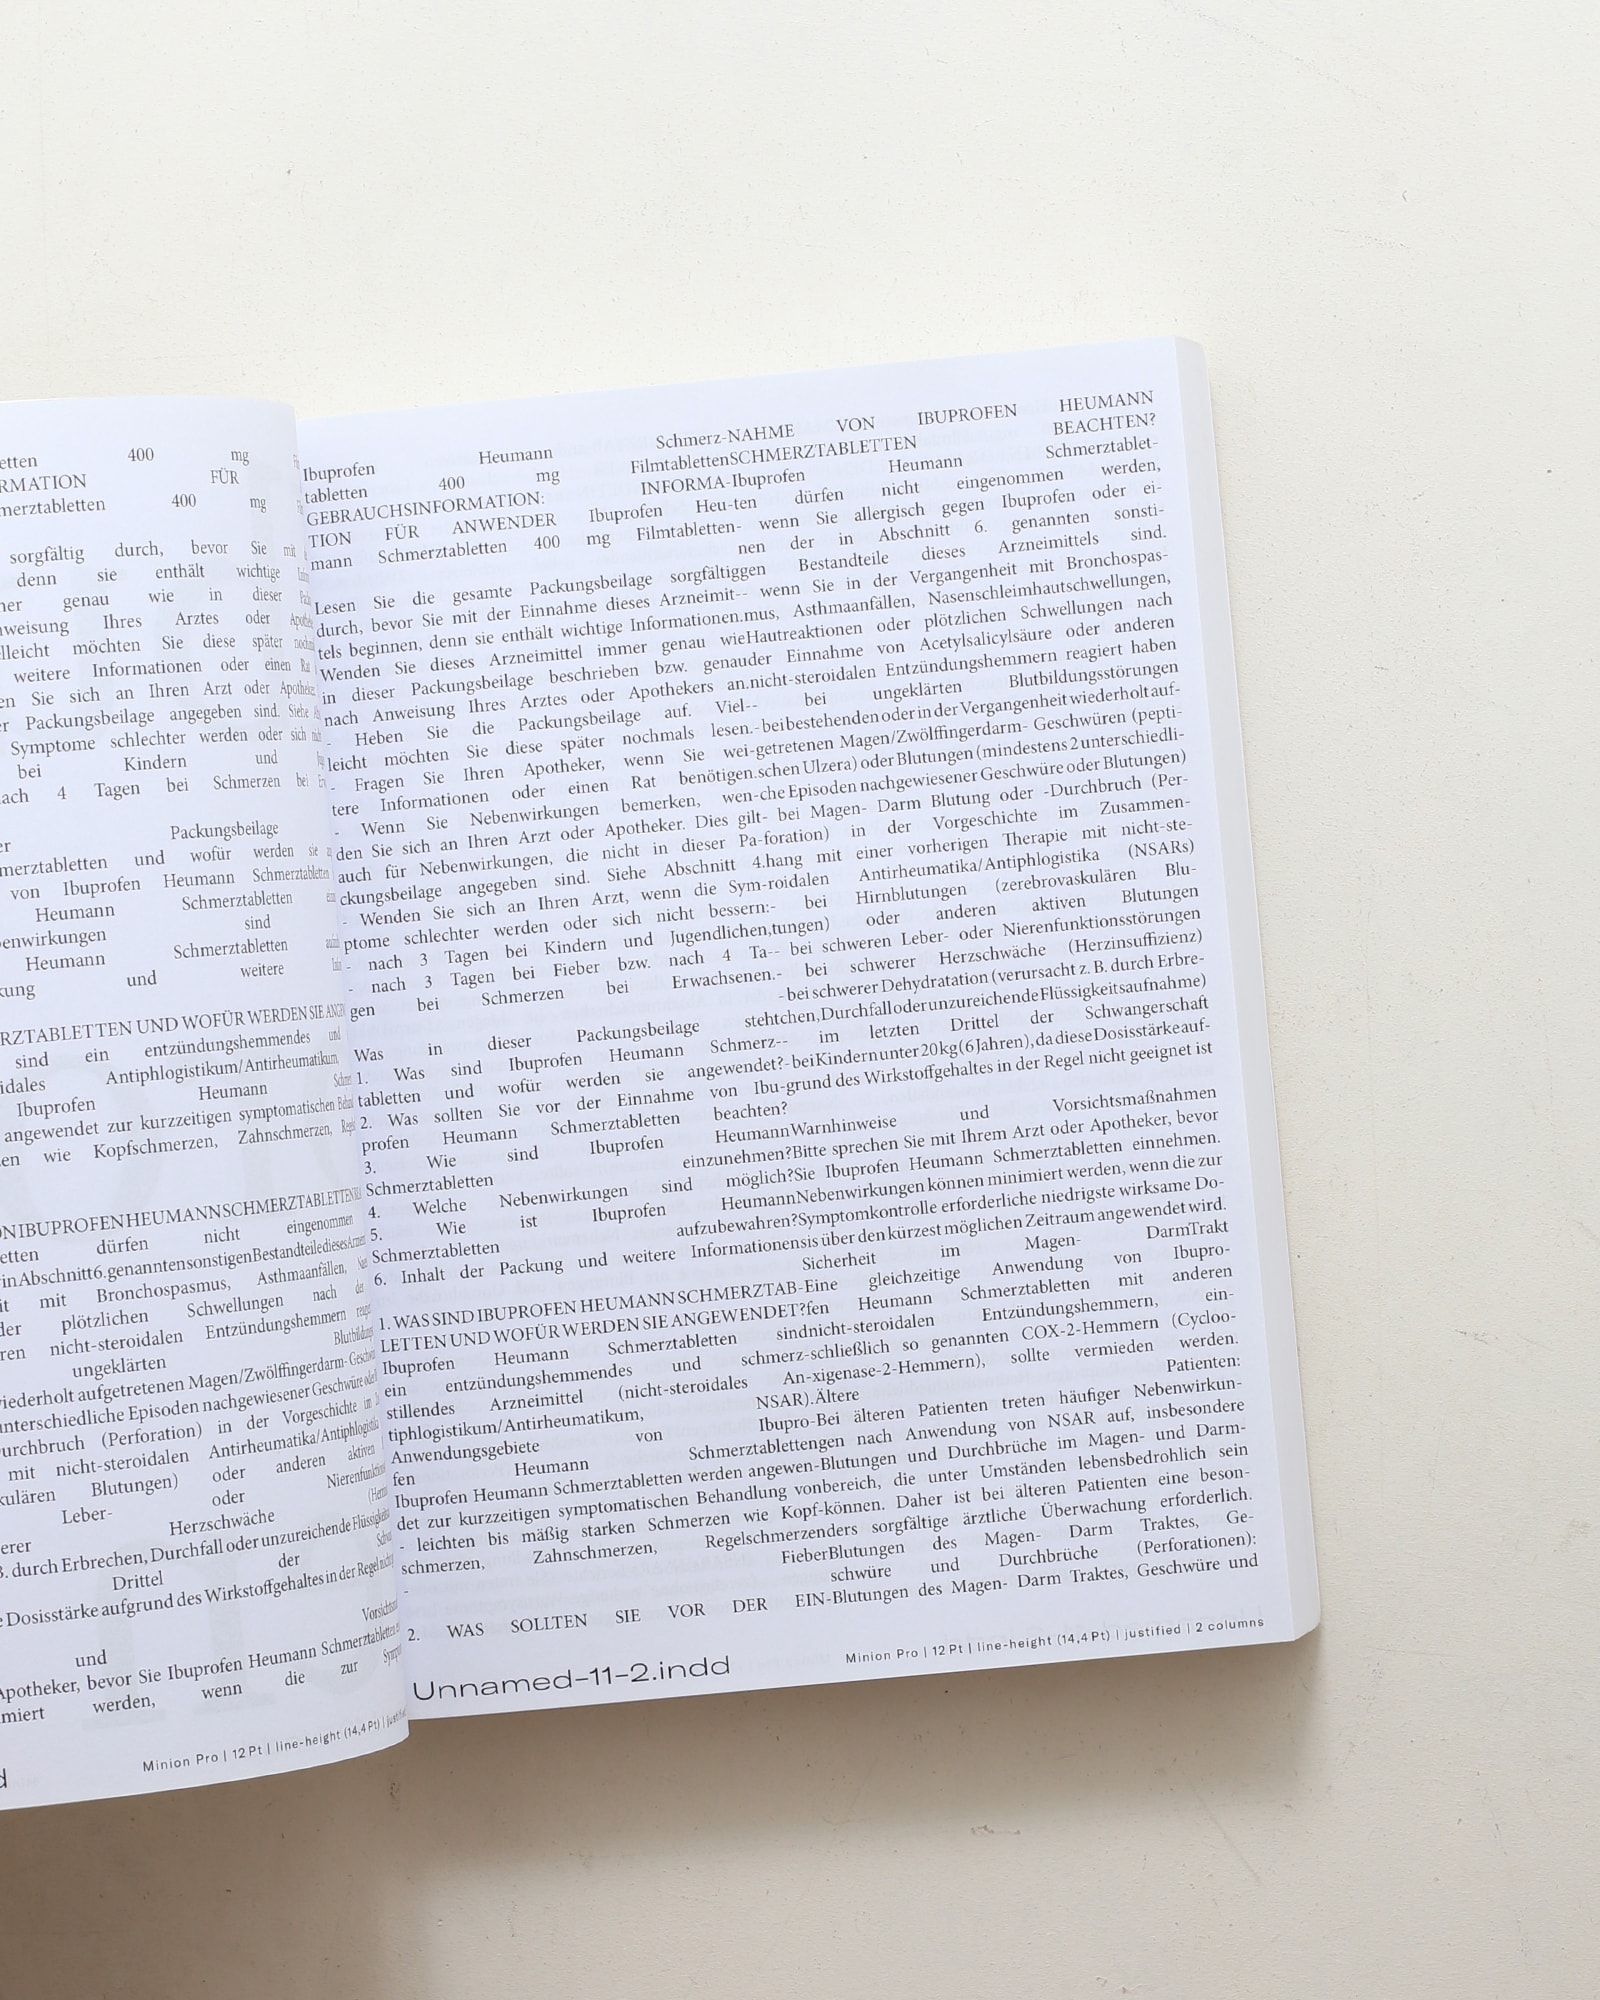 etten 400 mg
RMATION FÜR
merztabletten 400 mg
sorgfältig durch, bevor Sie mit
denn sie enthält wichtige
ner genau wie in dieser
nweisung Ihres Arztes oder
elleicht möchten Sie diese später
weitere Informationen oder einen Rat
en Sie sich an Ihren Arzt oder Apotheker
er Packungsbeilage angegeben sind. Siehe
Symptome schlechter werden oder sich
bei Kindern und
nach 4 Tagen bei Schmerzen bei
er Packungsbeilage
merztabletten und wofür werden sie
von Ibuprofen Heumann Schmerztabletten
Heumann Schmerztabletten
sind
benwirkungen
Heumann Schmerztabletten
kung und weitere
ERZTABLETTEN UND WOFÜR WERDEN SIE
sind ein entzündungshemmendes und
idales Antiphlogistikum/Antirheumatikum,
Ibuprofen Heumann
angewendet zur kurzzeitigen symptomatischen
en wie Kopfschmerzen, Zahnschmerzen,
ON IBUPROFEN HEUMANN SCHMERZTABLETTEN
etten dürfen nicht eingenommen
in Abschnitt 6. genannten sonstigen Bestandteile dieses
it mit Bronchospasmus, Asthmaanfällen,
der plötzlichen Schwellungen nach der
ren nicht-steroidalen Entzündungshemmern
ungeklärten
wiederholt aufgetretenen Magen/Zwölffingerdarm-
unterschiedliche Episoden nachgewiesener Geschwüre
urchbruch (Perforation) in der Vorgeschichte im
mit nicht-steroidalen Antirheumatika/Antiphlogistika
kulären Blutungen) oder anderen aktiven
Leber- oder
erer Herzschwäche
B. durch Erbrechen, Durchfall oder unzureichende
Drittel der
e Dosisstärke aufgrund des Wirkstoffgehaltes in der Regel
und
Apotheker, bevor Sie Ibuprofen Heumann Schmerztabletten
miert werden, wenn die zur
Minion Pro | 12 Pt | line-height (14,4 Pt) |
Ibuprofen Heumann Schmerz-
tabletten 400 mg Filmtabletten
GEBRAUCHSINFORMATION: INFORMA-
TION FÜR ANWENDER Ibuprofen Heu-
mann Schmerztabletten 400 mg Filmtabletten
Lesen Sie die gesamte Packungsbeilage sorgfältig
durch, bevor Sie mit der Einnahme dieses Arzneimit-
tels beginnen, denn sie enthält wichtige Informationen.
Wenden Sie dieses Arzneimittel immer genau wie
in dieser Packungsbeilage beschrieben bzw. genau
nach Anweisung Ihres Arztes oder Apothekers an.
- Heben Sie die Packungsbeilage auf. Viel-
leicht möchten Sie diese später nochmals lesen.
- Fragen Sie Ihren Apotheker, wenn Sie wei-
tere Informationen oder einen Rat benötigen.
- Wenn Sie Nebenwirkungen bemerken, wen-
den Sie sich an Ihren Arzt oder Apotheker. Dies gilt
auch für Nebenwirkungen, die nicht in dieser Pa-
ckungsbeilage angegeben sind. Siehe Abschnitt 4.
- Wenden Sie sich an Ihren Arzt, wenn die Sym-
ptome schlechter werden oder sich nicht bessern:
- nach 3 Tagen bei Kindern und Jugendlichen,
- nach 3 Tagen bei Fieber bzw. nach 4 Ta-
gen bei Schmerzen bei Erwachsenen.
Was in dieser Packungsbeilage steht
1. Was sind Ibuprofen Heumann Schmerz-
tabletten und wofür werden sie angewendet?
2. Was sollten Sie vor der Einnahme von Ibu-
profen Heumann Schmerztabletten beachten?
3. Wie sind Ibuprofen Heumann
Schmerztabletten einzunehmen?
4. Welche Nebenwirkungen sind möglich?
5. Wie ist Ibuprofen Heumann
Schmerztabletten aufzubewahren?
6. Inhalt der Packung und weitere Informationen
1. WAS SIND IBUPROFEN HEUMANN SCHMERZTAB-
LETTEN UND WOFÜR WERDEN SIE ANGEWENDET?
Ibuprofen Heumann Schmerztabletten sind
ein entzündungshemmendes und schmerz-
stillendes Arzneimittel (nicht-steroidales An-
tiphlogistikum/Antirheumatikum, NSAR).
Anwendungsgebiete von Ibupro-
fen Heumann Schmerztabletten
Ibuprofen Heumann Schmerztabletten werden angewen-
det zur kurzzeitigen symptomatischen Behandlung von
- leichten bis mäßig starken Schmerzen wie Kopf-
schmerzen, Zahnschmerzen, Regelschmerzen
- Fieber
2. WAS SOLLTEN SIE VOR DER EIN-
NAHME VON IBUPROFEN HEUMANN
SCHMERZTABLETTEN BEACHTEN?
Ibuprofen Heumann Schmerztablet-
ten dürfen nicht eingenommen werden,
- wenn Sie allergisch gegen Ibuprofen oder ei-
nen der in Abschnitt 6. genannten sonsti-
gen Bestandteile dieses Arzneimittels sind.
- wenn Sie in der Vergangenheit mit Bronchospas-
mus, Asthmaanfällen, Nasenschleimhautschwellungen,
Hautreaktionen oder plötzlichen Schwellungen nach
der Einnahme von Acetylsalicylsäure oder anderen
nicht-steroidalen Entzündungshemmern reagiert haben
- bei ungeklärten Blutbildungsstörungen
- bei bestehenden oder in der Vergangenheit wiederholt auf-
getretenen Magen/Zwölffingerdarm- Geschwüren (pepti-
schen Ulzera) oder Blutungen (mindestens 2 unterschiedli-
che Episoden nachgewiesener Geschwüre oder Blutungen)
- bei Magen- Darm Blutung oder -Durchbruch (Per-
foration) in der Vorgeschichte im Zusammen-
hang mit einer vorherigen Therapie mit nicht-ste-
roidalen Antirheumatika/Antiphlogistika (NSARs)
- bei Hirnblutungen (zerebrovaskulären Blu-
tungen) oder anderen aktiven Blutungen
- bei schweren Leber- oder Nierenfunktionsstörungen
- bei schwerer Herzschwäche (Herzinsuffizienz)
- bei schwerer Dehydratation (verursacht z. B. durch Erbre-
chen, Durchfall oder unzureichende Flüssigkeitsaufnahme)
- im letzten Drittel der Schwangerschaft
- bei Kindern unter 20 kg (6 Jahren), da diese Dosisstärke auf-
grund des Wirkstoffgehaltes in der Regel nicht geeignet ist
Warnhinweise und Vorsichtsmaßnahmen
Bitte sprechen Sie mit Ihrem Arzt oder Apotheker, bevor
Sie Ibuprofen Heumann Schmerztabletten einnehmen.
Nebenwirkungen können minimiert werden, wenn die zur
Symptomkontrolle erforderliche niedrigste wirksame Do-
sis über den kürzest möglichen Zeitraum angewendet wird.
Sicherheit im Magen- DarmTrakt
Eine gleichzeitige Anwendung von Ibupro-
fen Heumann Schmerztabletten mit anderen
nicht-steroidalen Entzündungshemmern, ein-
schließlich so genannten COX-2-Hemmern (Cycloo-
xigenase-2-Hemmern), sollte vermieden werden.
Ältere Patienten:
Bei älteren Patienten treten häufiger Nebenwirkun-
gen nach Anwendung von NSAR auf, insbesondere
Blutungen und Durchbrüche im Magen- und Darm-
bereich, die unter Umständen lebensbedrohlich sein
können. Daher ist bei älteren Patienten eine beson-
ders sorgfältige ärztliche Überwachung erforderlich.
Blutungen des Magen- Darm Traktes, Ge-
schwüre und Durchbrüche (Perforationen):
Blutungen des Magen- Darm Traktes, Geschwüre und
Unnamed-11-2.indd
Minion Pro | 12 Pt | line-height (14,4 Pt) | justified | 2 columns